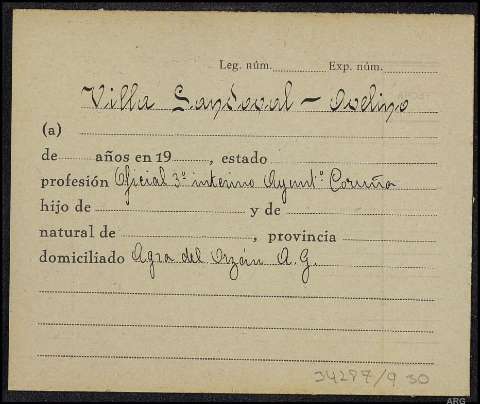 Leg. núm. Exp. núm.
Villa Sandoval - Avelino
(a)
de años en 19 , estado
profesión Oficial 3º interino Ayuntº Coruña
hijo de y de
natural de , provincia
domiciliado Agra del Orzán A.G.
34287/9 30
ARG